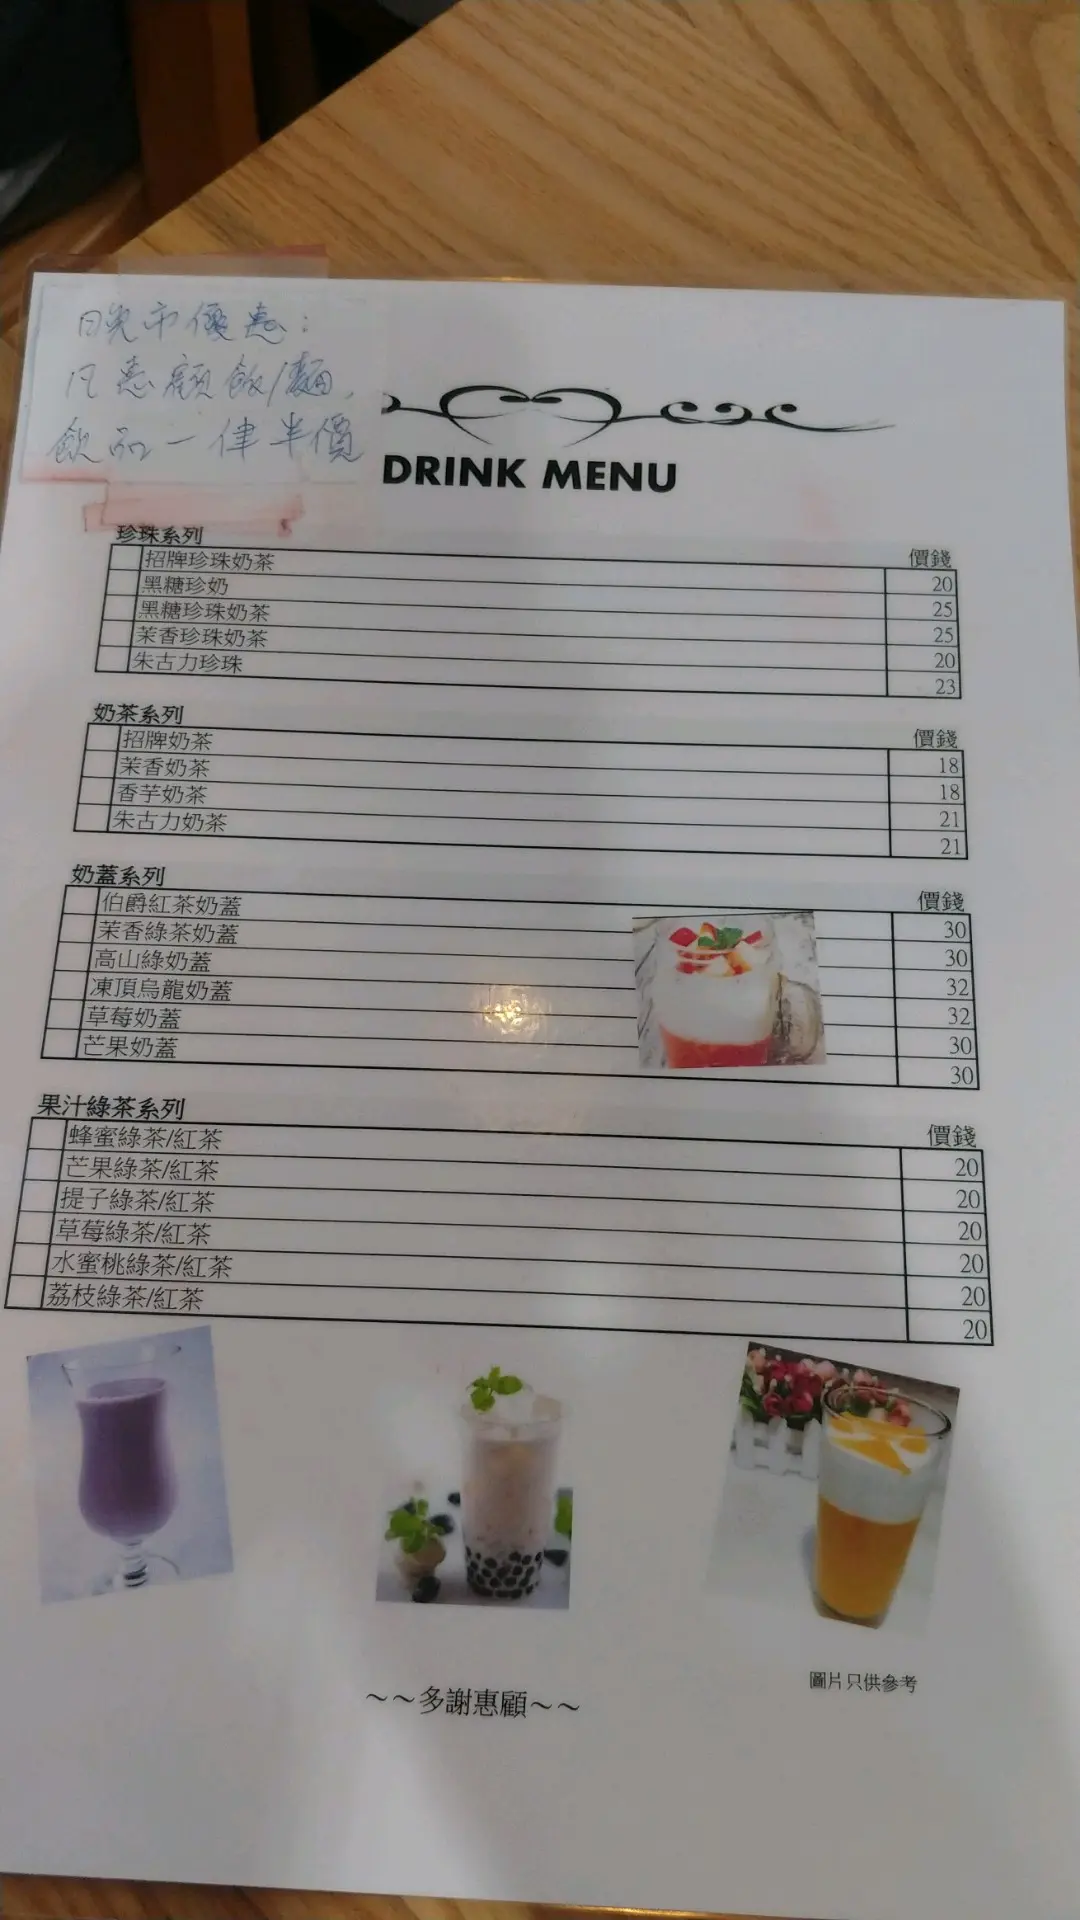 晚市優惠:
凡惠顧飯/麵,
飲品一律半價
DRINK MENU
珍珠系列 價錢
招牌珍珠奶茶 20
黑糖珍奶 25
黑糖珍珠奶茶 25
茉香珍珠奶茶 20
朱古力珍珠 23
奶茶系列 價錢
招牌奶茶 18
茉香奶茶 18
香芋奶茶 21
朱古力奶茶 21
奶蓋系列 價錢
伯爵紅茶奶蓋 30
茉香綠茶奶蓋 30
高山綠奶蓋 32
凍頂烏龍奶蓋 32
草莓奶蓋 30
芒果奶蓋 30
果汁綠茶系列 價錢
蜂蜜綠茶/紅茶 20
芒果綠茶/紅茶 20
提子綠茶/紅茶 20
草莓綠茶/紅茶 20
水蜜桃綠茶/紅茶 20
荔枝綠茶/紅茶 20
圖片只供參考
~~多謝惠顧~~